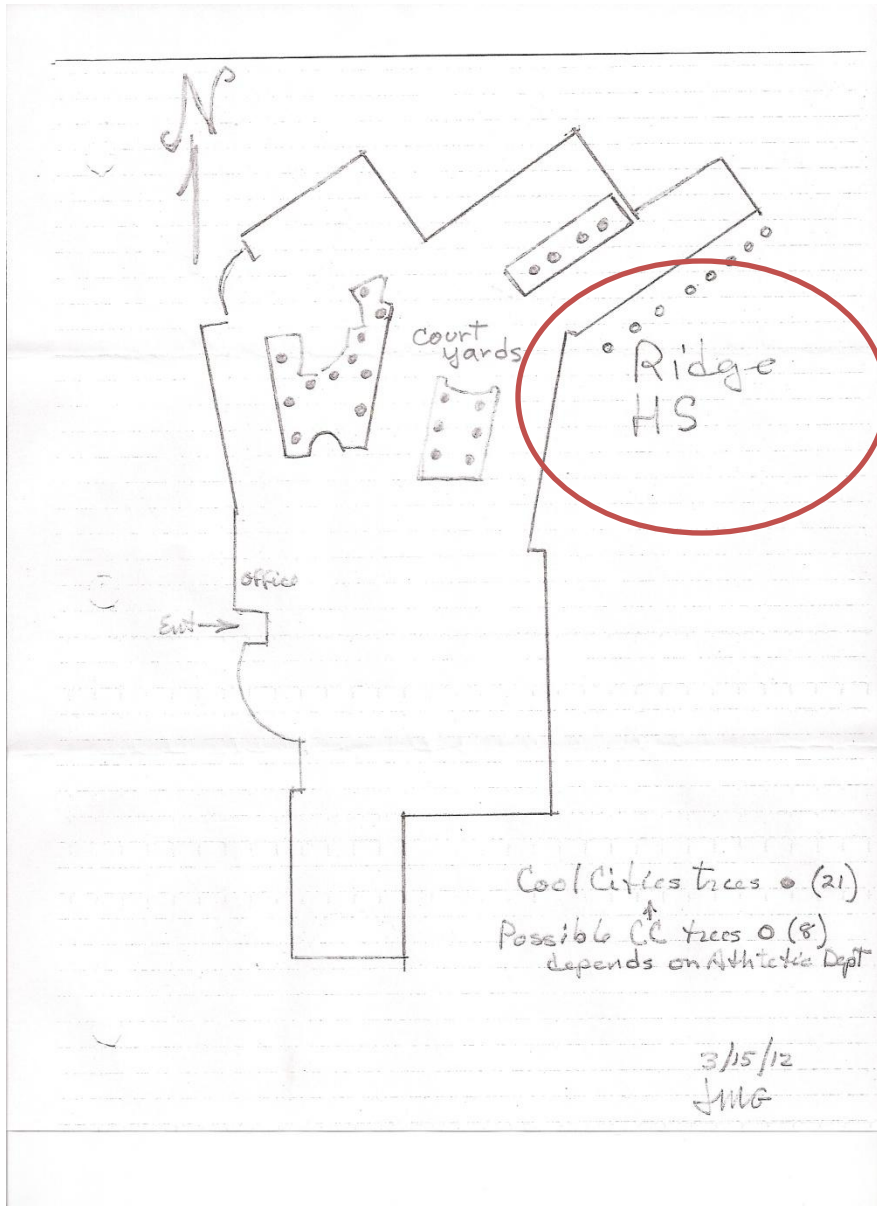 N
Court
yards
Ridge
HS
Office
Ent
Cool Cities trees (21)
Possible CC trees (8)
depends on Athletic Dept
3/15/12
JMG